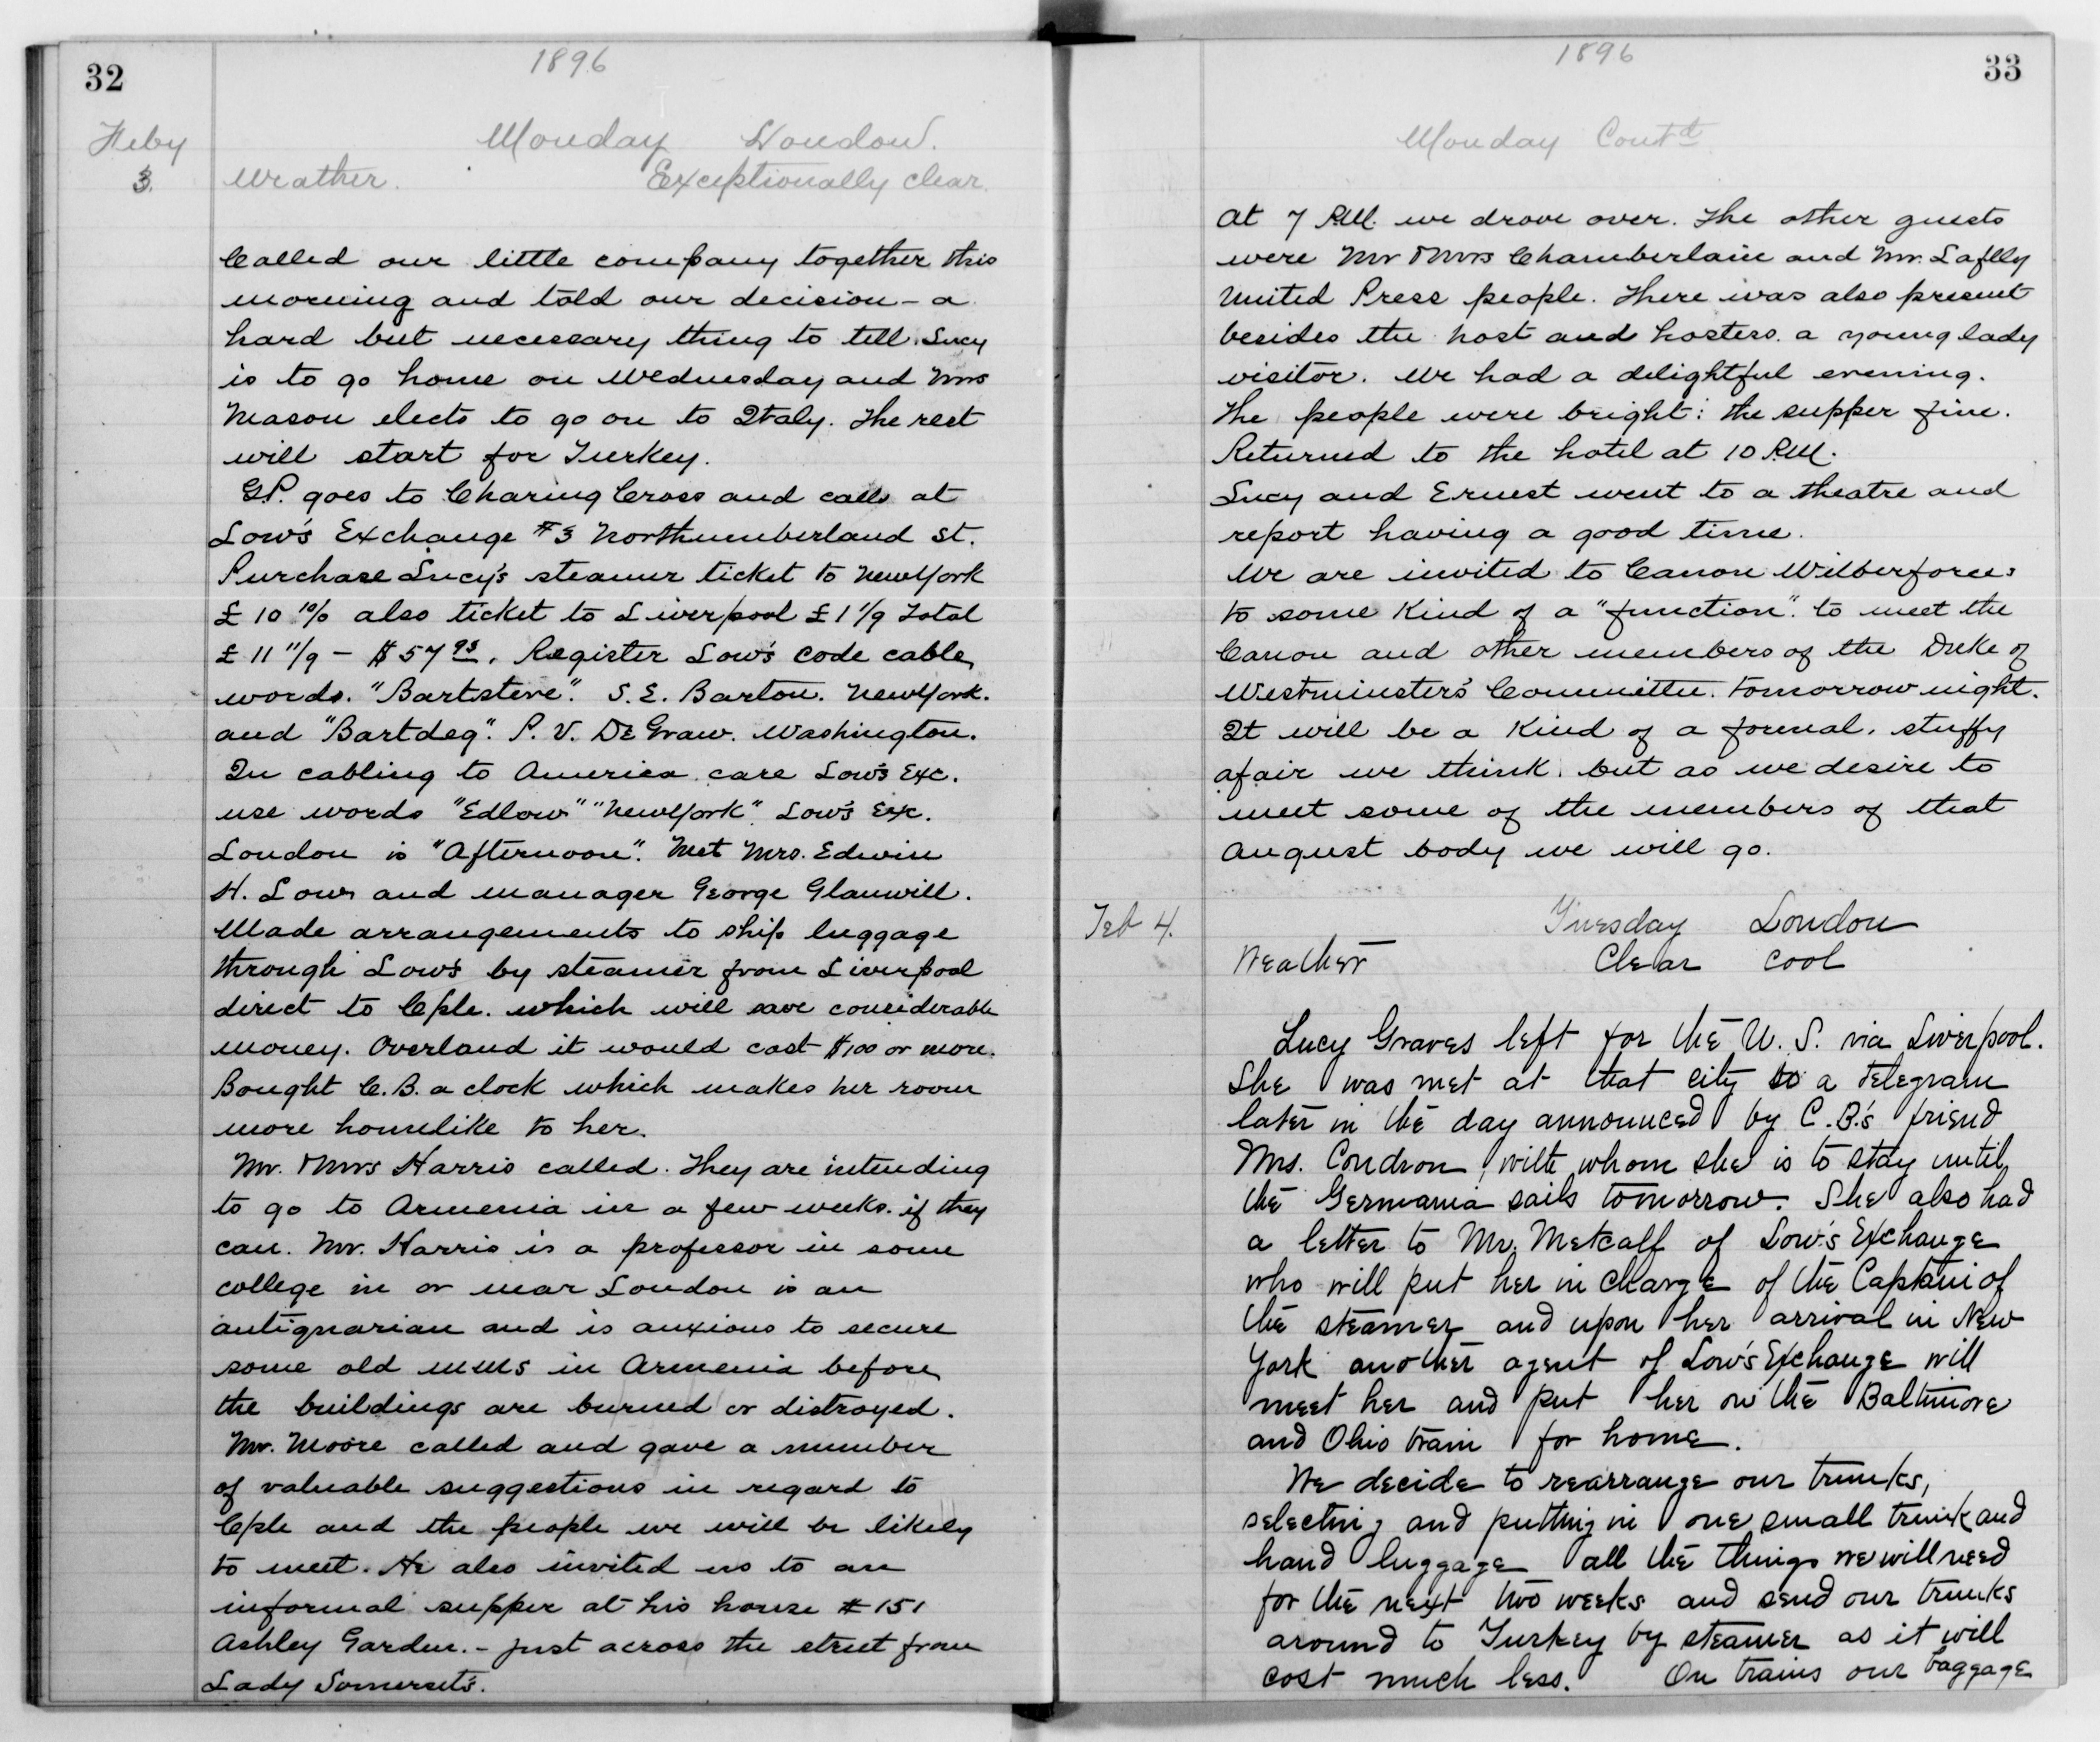 32
1896
Feby
3.
Monday London.
Weather. Exceptionally clear.
Called our little company together this
morning and told our decision - a
hard but necessary thing to tell. Lucy
is to go home on Wednesday and Mrs
Mason elects to go on to Italy. The rest
will start for Turkey.
G.P. goes to Charing Cross and calls at
Low's Exchange #3 Northumberland St.
Purchase Lucy's steamer ticket to New York
£ 10 10/0 also ticket to Liverpool £1 1/9 Total
£ 11 11/9 - $57 93. Register Low's code cable
words. "Bartsteve". S. E. Barton. New York.
and "Bartdeg". P. V. DeGraw. Washington.
In cabling to America, care Low's Exc.
use words "Edlow" "New York". Low's Exc.
London is "Afternoon". Met Mrs. Edwin
H. Low and manager George Glanwill.
Made arrangements to ship luggage
through Low's by steamer from Liverpool
direct to Cple. which will save considerable
money. Overland it would cost $100 or more.
Bought C.B. a clock which makes her room
more homelike to her.
Mr. & Mrs Harris called. They are intending
to go to Armenia in a few weeks. if they
can. Mr. Harris is a professor in some
college in or near London is an
antiquarian and is anxious to secure
some old mms in Armenia before
the buildings are burned or distroyed.
Mr. Moore called and gave a number
of valuable suggestions in regard to
Cple and the people we will be likely
to meet. He also invited us to an
informal supper at his house #151
Ashley Garden. - just across the street from
Lady Somersets'.
1896
33
Monday Contd
At 7 P.M. we drove over. The other guests
were Mr & Mrs Chamberlain and Mr. Laflly
United Press people. There was also present
besides the host and hosters. a young lady
visitor. We had a delightful evening.
The people were bright: the supper fine.
Returned to the hotel at 10 P.M.
Lucy and Ernest went to a theatre and
report having a good time.
We are invited to Canon Wilberforces
to some kind of a "function". to meet the
Canon and other members of the Duke of
Westminster's Committee. tomorrow night.
It will be a kind of a formal, stuffy
afair we think. but as we desire to
meet some of the members of that
august body we will go.
Feb 4.
Tuesday London
Weather Clear Cool
Lucy Graves left for the U. S. via Liverpool.
She was met at that city so a telegram
later in the day announced by C.B.'s friend
Mrs. Condron, with whom she is to stay until
the Germania sails tomorrow. She also had
a letter to Mr. Metcalf of Low's Exchange
who will put her in charge of the Captain of
the steamer and upon her arrival in New
York another agent of Low's Exchange will
meet her and put her on the Baltimore
and Ohio train for home.
We decide to rearrange our trunks,
selecting and putting in one small trunk and
hand luggage all the things we will need
for the next two weeks and send our trunks
around to Turkey by steamer as it will
cost much less. On trains our baggage